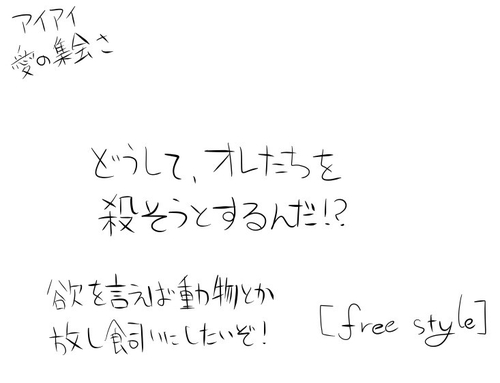 アイアイ
愛の集会さ
どうして、オレたちを
殺そうとするんだ!?
欲を言えば動物とか
放し飼いにしたいぞ!
[free style]